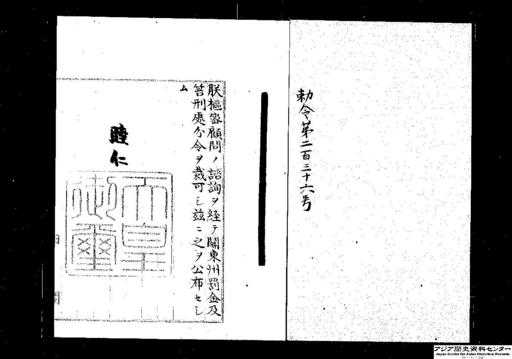 勅令第二百三十六号
朕枢密顧問ノ諮詢ヲ経テ関東州罰金及
笞刑処分令ヲ裁可シ茲ニ之ヲ公布セシ
ム
睦仁
天皇御璽
アジア歴史資料センター
Japan Center for Asian Historical Records